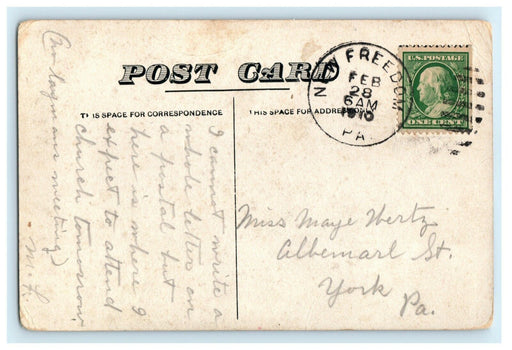 POST CARD
THIS SPACE FOR CORRESPONDENCE
THIS SPACE FOR ADDRESS ONLY
NEW FREEDOM
FEB
28
6 AM
1910
PA.
U.S. POSTAGE
ONE CENT
I cannot write a
whole letter on
a postal but
here is where I
expect to attend
church tomorrow
our meeting)
M. F.
Miss Maye Wertz
Albemarl St.
York
Pa.